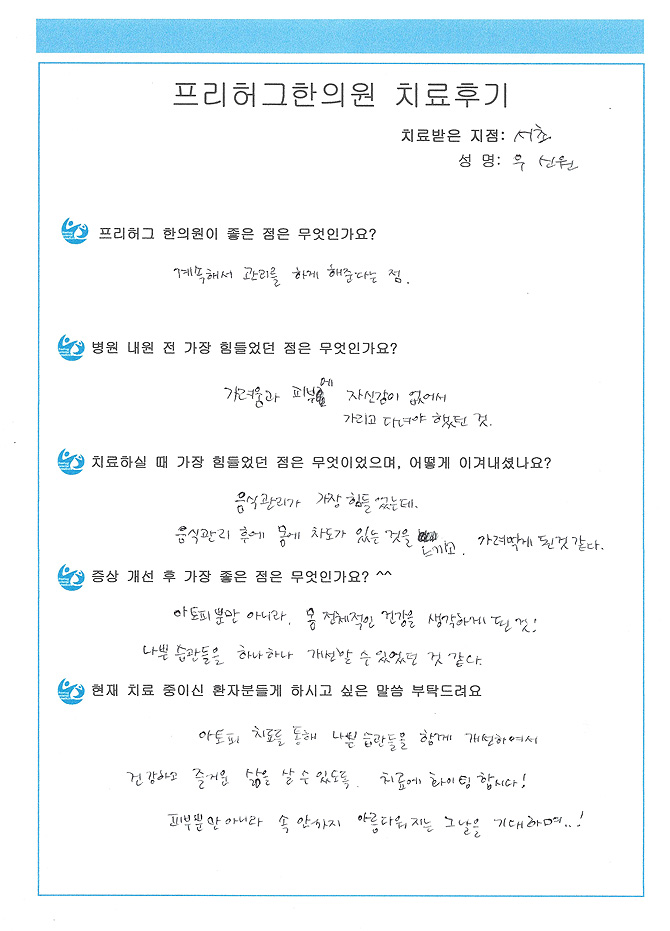 프리허그한의원 치료후기
치료받은 지점: 서초
성 명: 우 신원
프리허그 한의원이 좋은 점은 무엇인가요?
계속해서 관리를 하게 해준다는 점.
병원 내원 전 가장 힘들었던 점은 무엇인가요?
가려움과 피부에 자신감이 없어서
가리고 다녀야 했던 것.
치료하실 때 가장 힘들었던 점은 무엇이었으며, 어떻게 이겨내셨나요?
음식관리가 가장 힘들었는데.
음식관리 후에 몸에 차도가 있는 것을 느끼고. 가려먹게 된것 같다.
증상 개선 후 가장 좋은 점은 무엇인가요? ^^
아토피뿐만 아니라, 몸 전체적인 건강을 생각하게 된 것!
나쁜 습관들을 하나하나 개선할 수 있었던 것 같다.
현재 치료 중이신 환자분들게 하시고 싶은 말씀 부탁드려요
아토피 치료를 통해 나쁜 습관들을 함께 개선하여서
건강하고 즐거운 삶을 살 수 있도록. 치료에 화이팅 합시다!
피부뿐만아니라 속 안까지 아름다워지는 그날을 기대하며..!